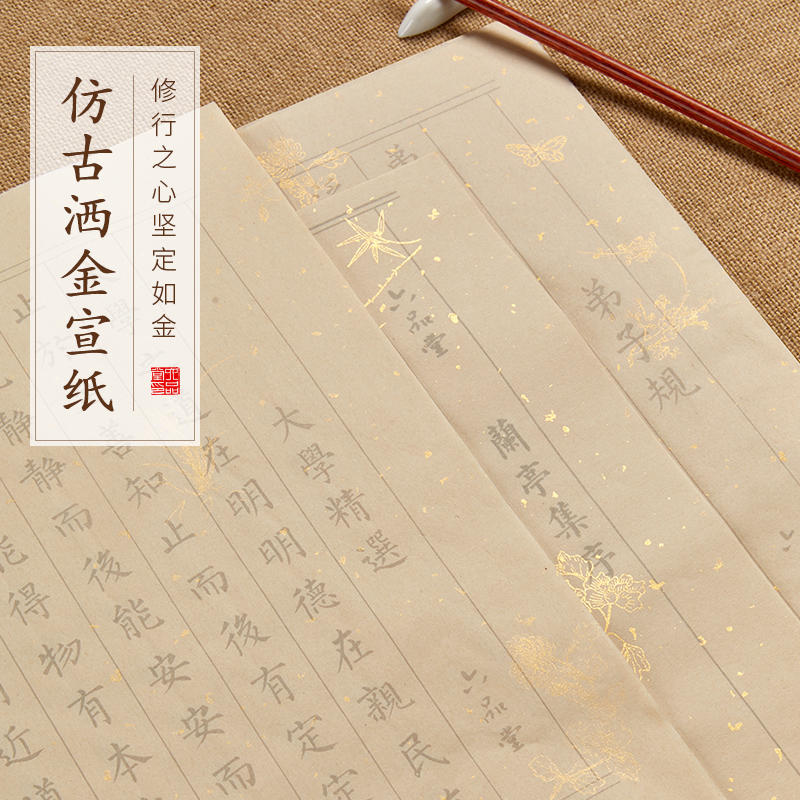 仿古洒金宣纸
修行之心坚定如金
六品堂印
弟子規
蘭亭集序
六品堂
六品堂
大學精選
學
道在明明德在親民
止於
善知止而後有定定
静静而後能安安而
能得物有本
近道